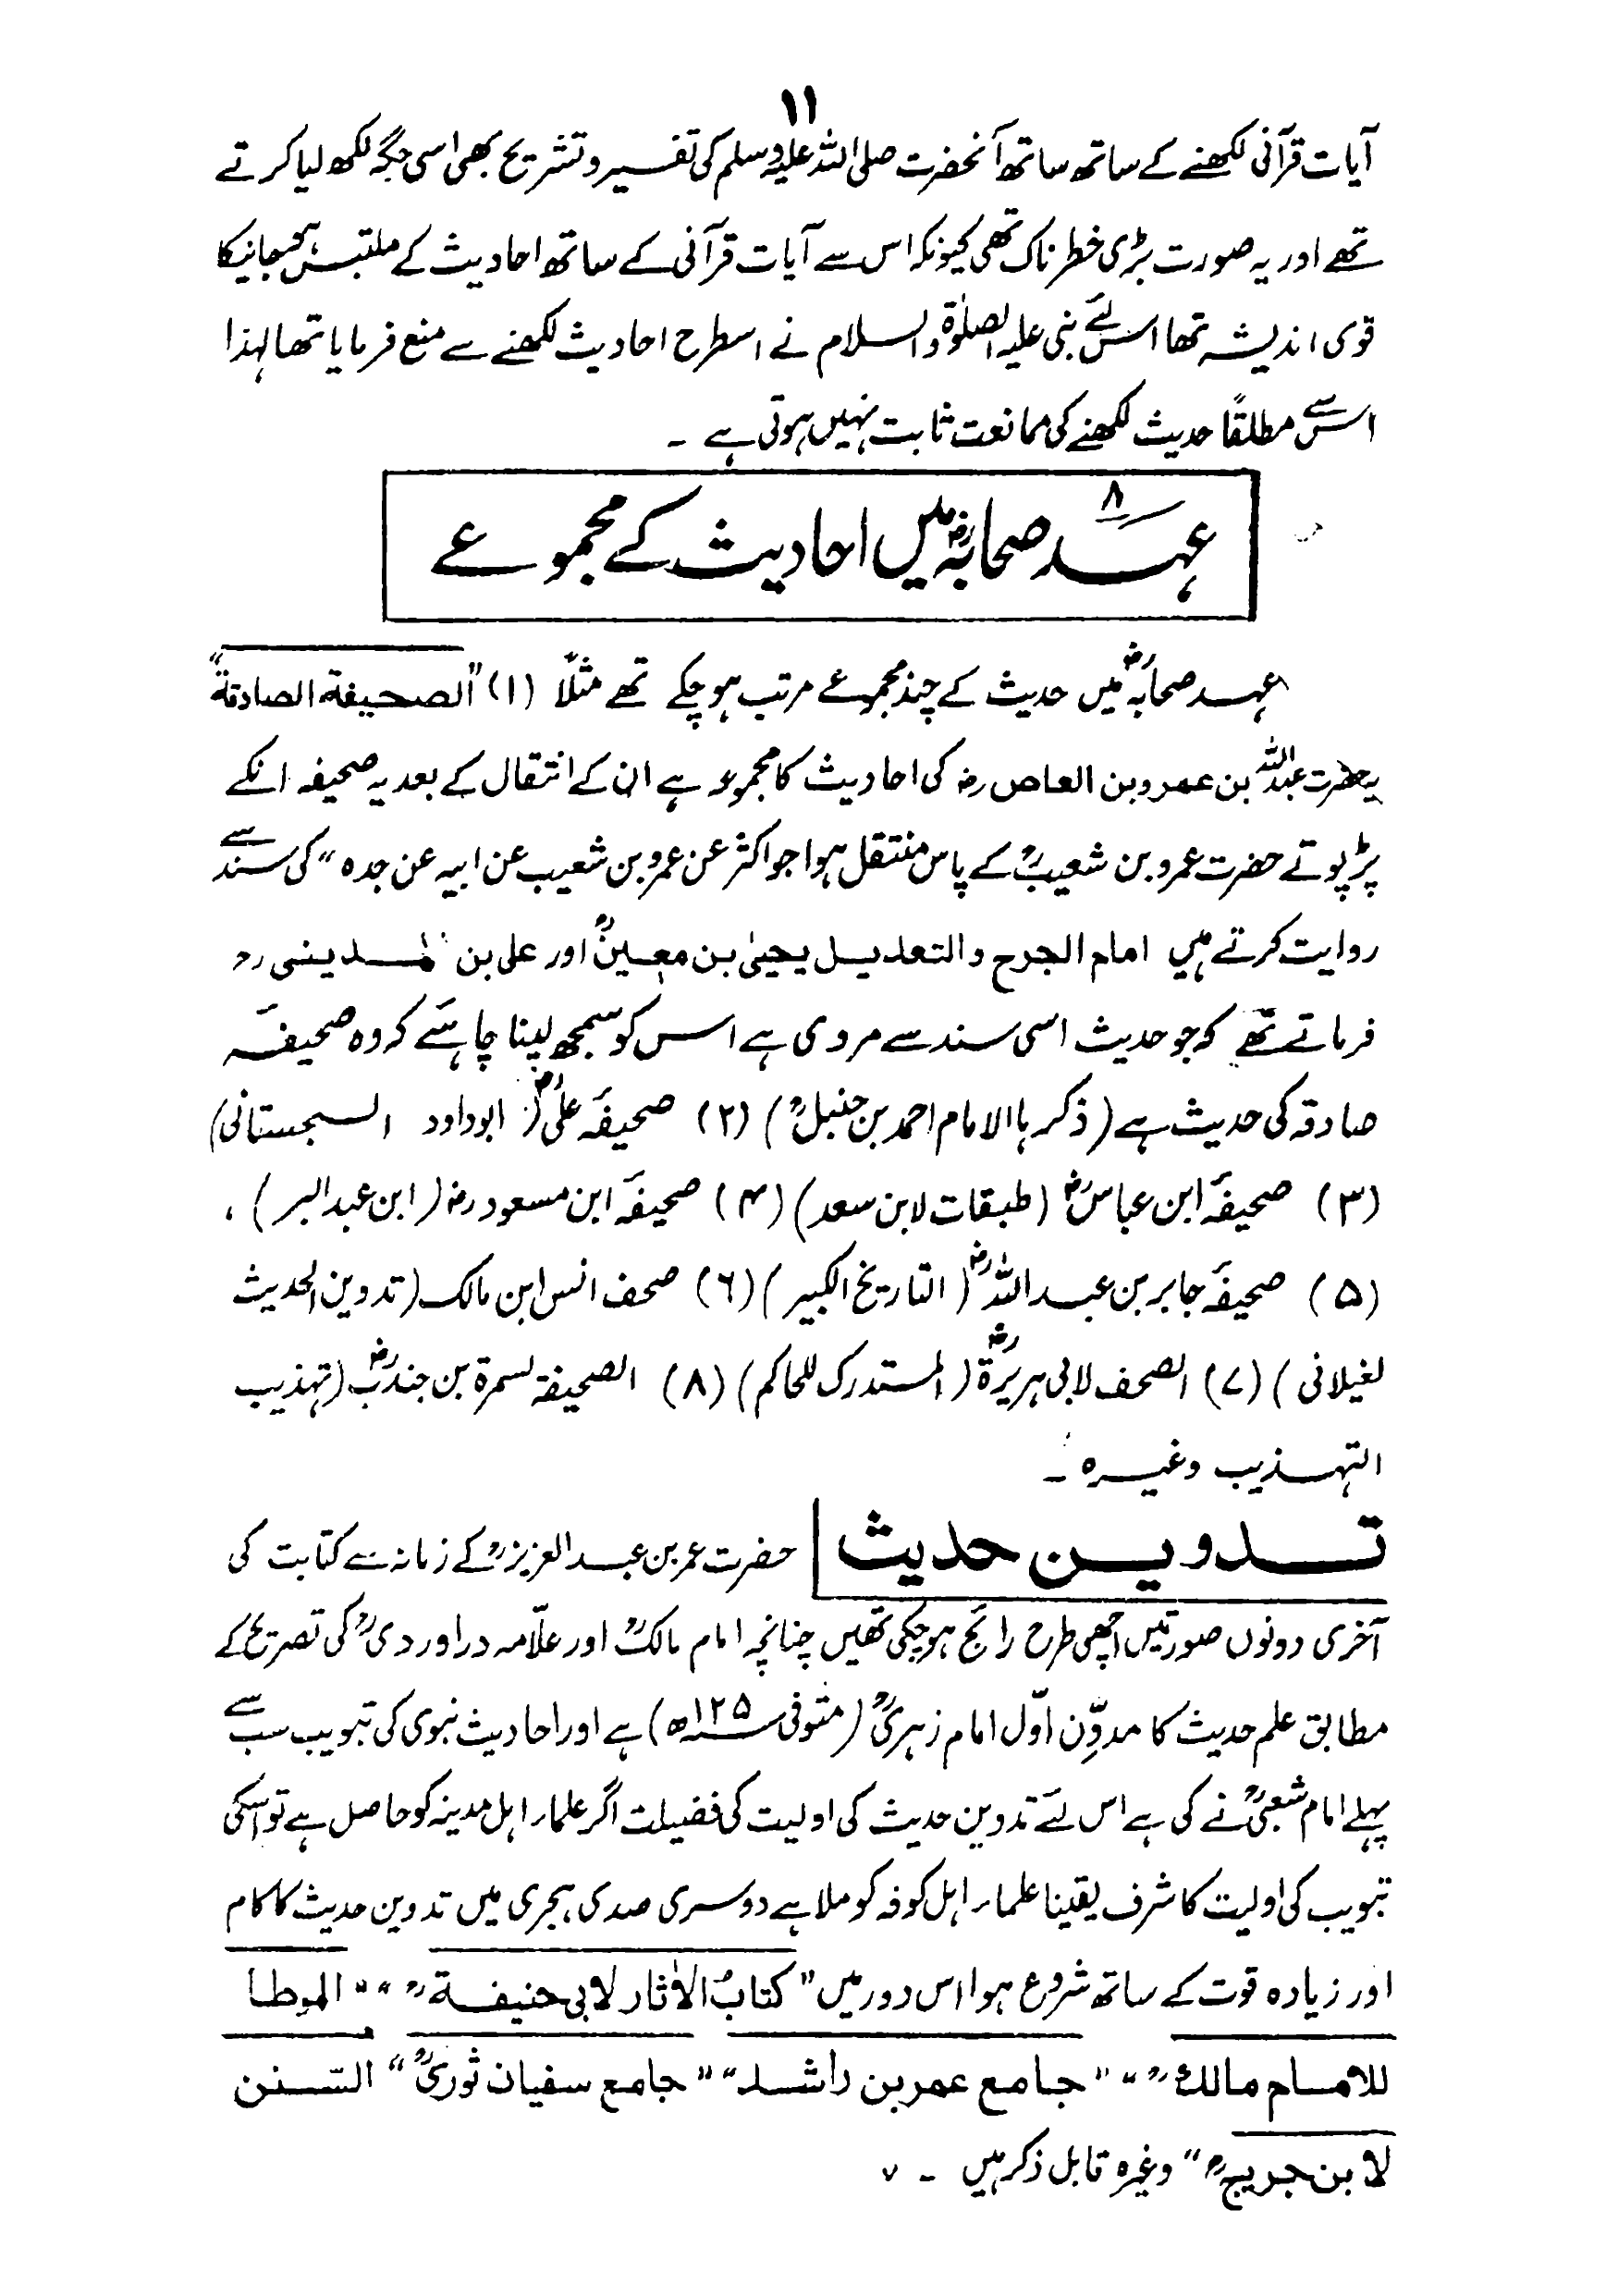 ۱۱
آیات قرآنی لکھنے کے ساتھ ساتھ آنحضرت صلی اللہ علیہ وسلم کی تفسیر و تشریح بھی اسی جگہ لکھ لیا کرتے
تھے اور یہ صورت بڑی خطرناک تھی کیونکہ اس سے آیات قرآنی کے ساتھ احادیث کے ملتبس ہوجانیکا
قوی اندیشہ تھا اسلئے نبی علیہ الصلوٰۃ والسلام نے اسطرح احادیث لکھنے سے منع فرمایا تھا لہذا
اس سے مطلقاً حدیث لکھنے کی ممانعت ثابت نہیں ہوتی ہے ۔
۸
عہد صحابہؓ میں احادیث کے مجموعے
عہد صحابہؓ میں حدیث کے چند مجموعے مرتب ہوچکے تھے مثلاً (۱) "الصحیفۃ الصادقۃ"
یہ حضرت عبداللہ بن عمرو بن العاص رضؓ کی احادیث کا مجموعہ ہے ان کے انتقال کے بعد یہ صحیفہ انکے
پڑپوتے حضرت عمرو بن شعیبؒ کے پاس منتقل ہوا جو اکثر عن عمرو بن شعیب عن ابیہ عن جدہ " کی سند سے
روایت کرتے ہیں امام الجرح والتعدیل یحییٰ بن معینؒ اور علی بن المدینی رح
فرماتے تھے کہ جو حدیث اسی سند سے مروی ہے اس کو سمجھ لینا چاہئے کہ وہ صحیفہ
صادقہ کی حدیث ہے (ذکرہا الامام احمد بن حنبلؒ) (۲) صحیفۂ علیؓ (ابوداود السجستانی)
(۳) صحیفۂ ابن عباسؓ (طبقات لابن سعد) (۴) صحیفۂ ابن مسعود رض (ابن عبدالبر) ،
(۵) صحیفۂ جابر بن عبداللہؓ (التاریخ الکبیر) (۶) صحف انس ابن مالک (تدوین الحدیث
لغیلانی) (۷) الصحف لابی ہریرۃؓ (المستدرک للحاکم) (۸) الصحیفۃ لسمرۃ بن جندبؓ (تہذیب
التہذیب وغیرہ ۔
تدوین حدیث | حضرت عمر بن عبدالعزیزؒ کے زمانہ سے کتابت کی
آخری دونوں صورتیں اچھی طرح رائج ہوچکی تھیں چنانچہ امام مالکؒ اور علّامہ دراوردیؒ کی تصریح کے
مطابق علم حدیث کا مدوِّن اوّل امام زہریؒ (متوفی ۱۲۵ھ) ہے اور احادیث نبوی کی تبویب سب سے
پہلے امام شعبیؒ نے کی ہے اس لئے تدوین حدیث کی اولیت کی فضیلت اگر علماء اہل مدینہ کو حاصل ہے تو اسکی
تبویب کی اولیت کا شرف یقینا علماء اہل کوفہ کو ملا ہے دوسری صدی ہجری میں تدوین حدیث کا کام
اور زیادہ قوت کے ساتھ شروع ہوا اس دور میں "کتابُ الاٰثار لابی حنیفۃؒ" "الموطا
للامام مالکؒ" "جامع عمر بن راشد" "جامع سفیان ثوریؒ" السّنن
لابن جریجؒ" وغیرہ قابل ذکر ہیں ۔